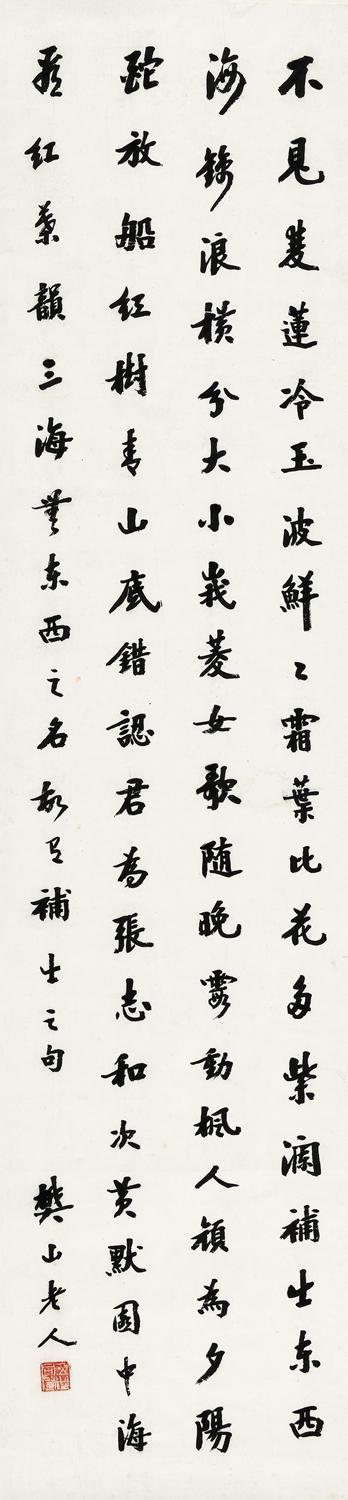 不見菱蓮冷玉波鮮〻霜葉比花多紫瀾補出東西
海錦浪橫分大小峩菱女歌随晚霞動楓人顏為夕陽
酡放船紅樹青山底錯認君為張志和次黃默園中海
看紅葉韻三海無東西之名故有補出之句
樊山老人